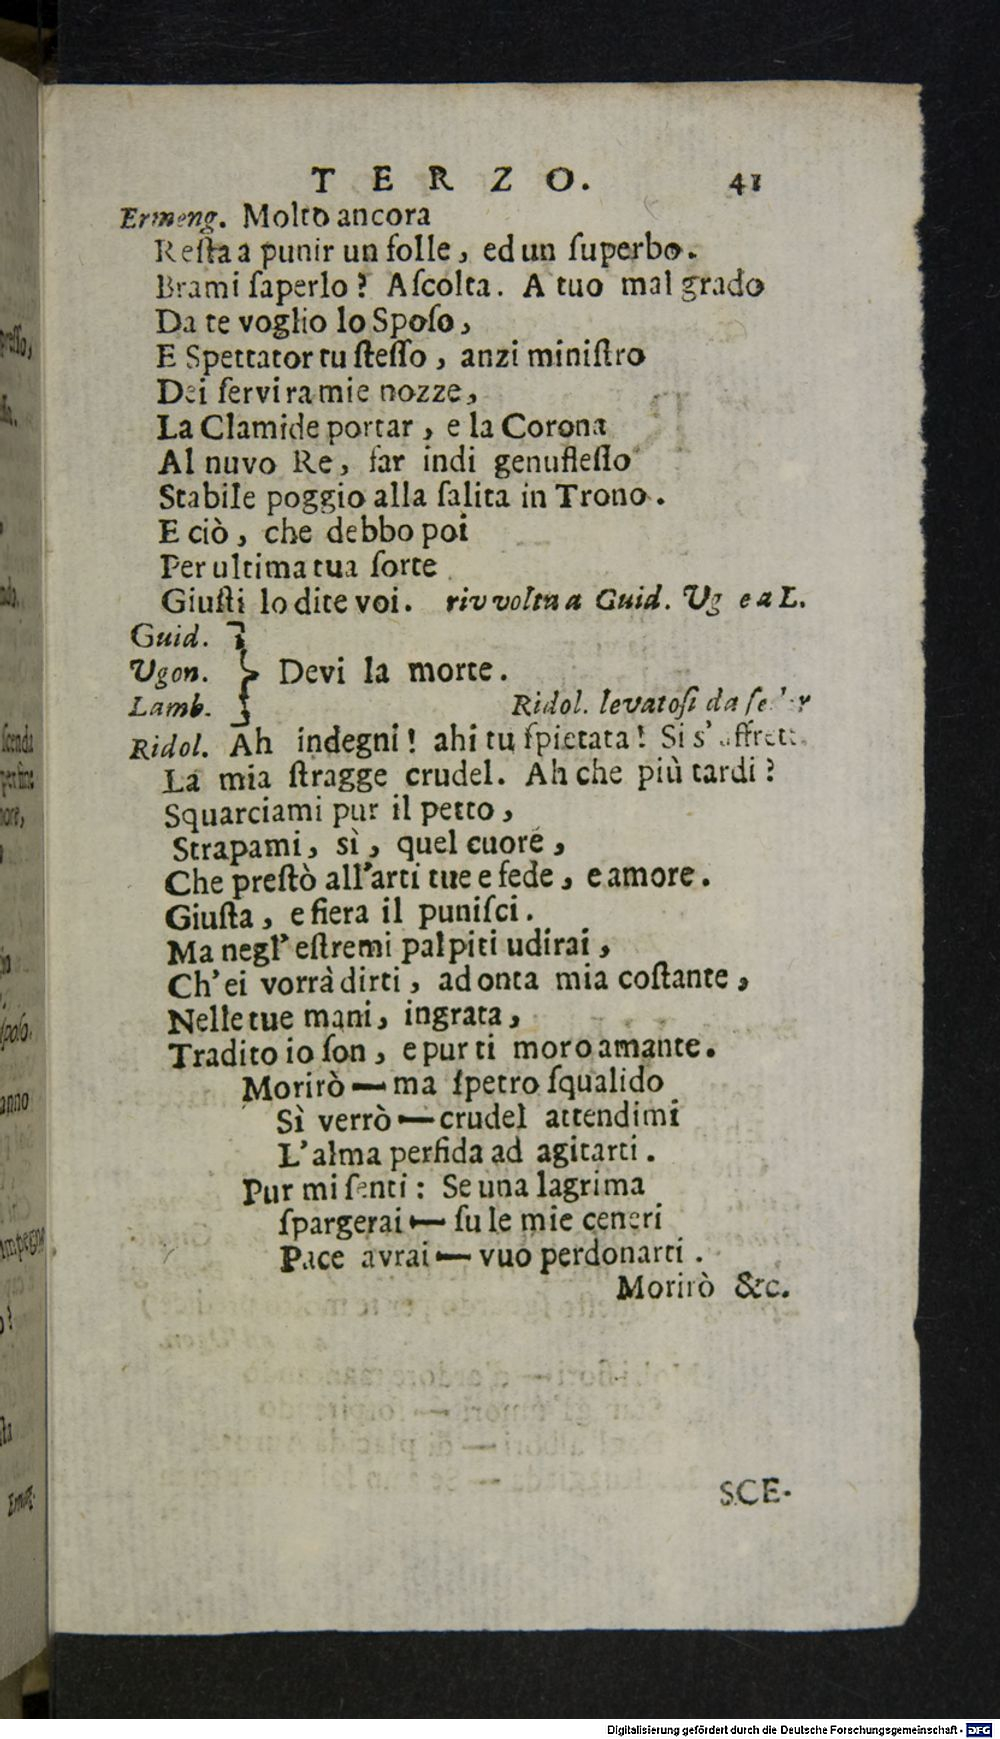 TERZO. 41
Ermeng. Molto ancora
Reſta a punir un folle, ed un ſuperbo.
Brami ſaperlo? Aſcolta. A tuo mal grado
Da te voglio lo Spoſo,
E Spettator tu ſteſſo, anzi miniſtro
Dei ſervir a mie nozze,
La Clamide portar, e la Corona
Al nuvo Re, far indi genufleſſo
Stabile poggio alla ſalita in Trono.
E ciò, che debbo poi
Per ultima tua ſorte
Giuſti lo dite voi. rivvolta a Guid. Ug e a L.
Guid.
Ugon. } Devi la morte.
Lamb. Ridol. levatoſi da
Ridol. Ah indegni! ahi tu ſpietata! Si s'affrett
La mia ſtragge crudel. Ah che più tardi?
Squarciami pur il petto,
Strapami, sì, quel cuore,
Che preſtò all'arti tue e fede, e amore.
Giuſta, e fiera il puniſci.
Ma negl' eſtremi palpiti udirai,
Ch' ei vorrà dirti, ad onta mia coſtante,
Nelle tue mani, ingrata,
Tradito io ſon, e pur ti moro amante.
Morirò — ma ſpetro ſqualido
Sì verrò — crudel attendimi
L'alma perfida ad agitarti.
Pur mi ſenti: Se una lagrima
ſpargerai — ſu le mie ceneri
Pace avrai — vuo perdonarti.
Morirò &c.
SCE-
Digitalisierung gefördert durch die Deutsche Forschungsgemeinschaft - DFG